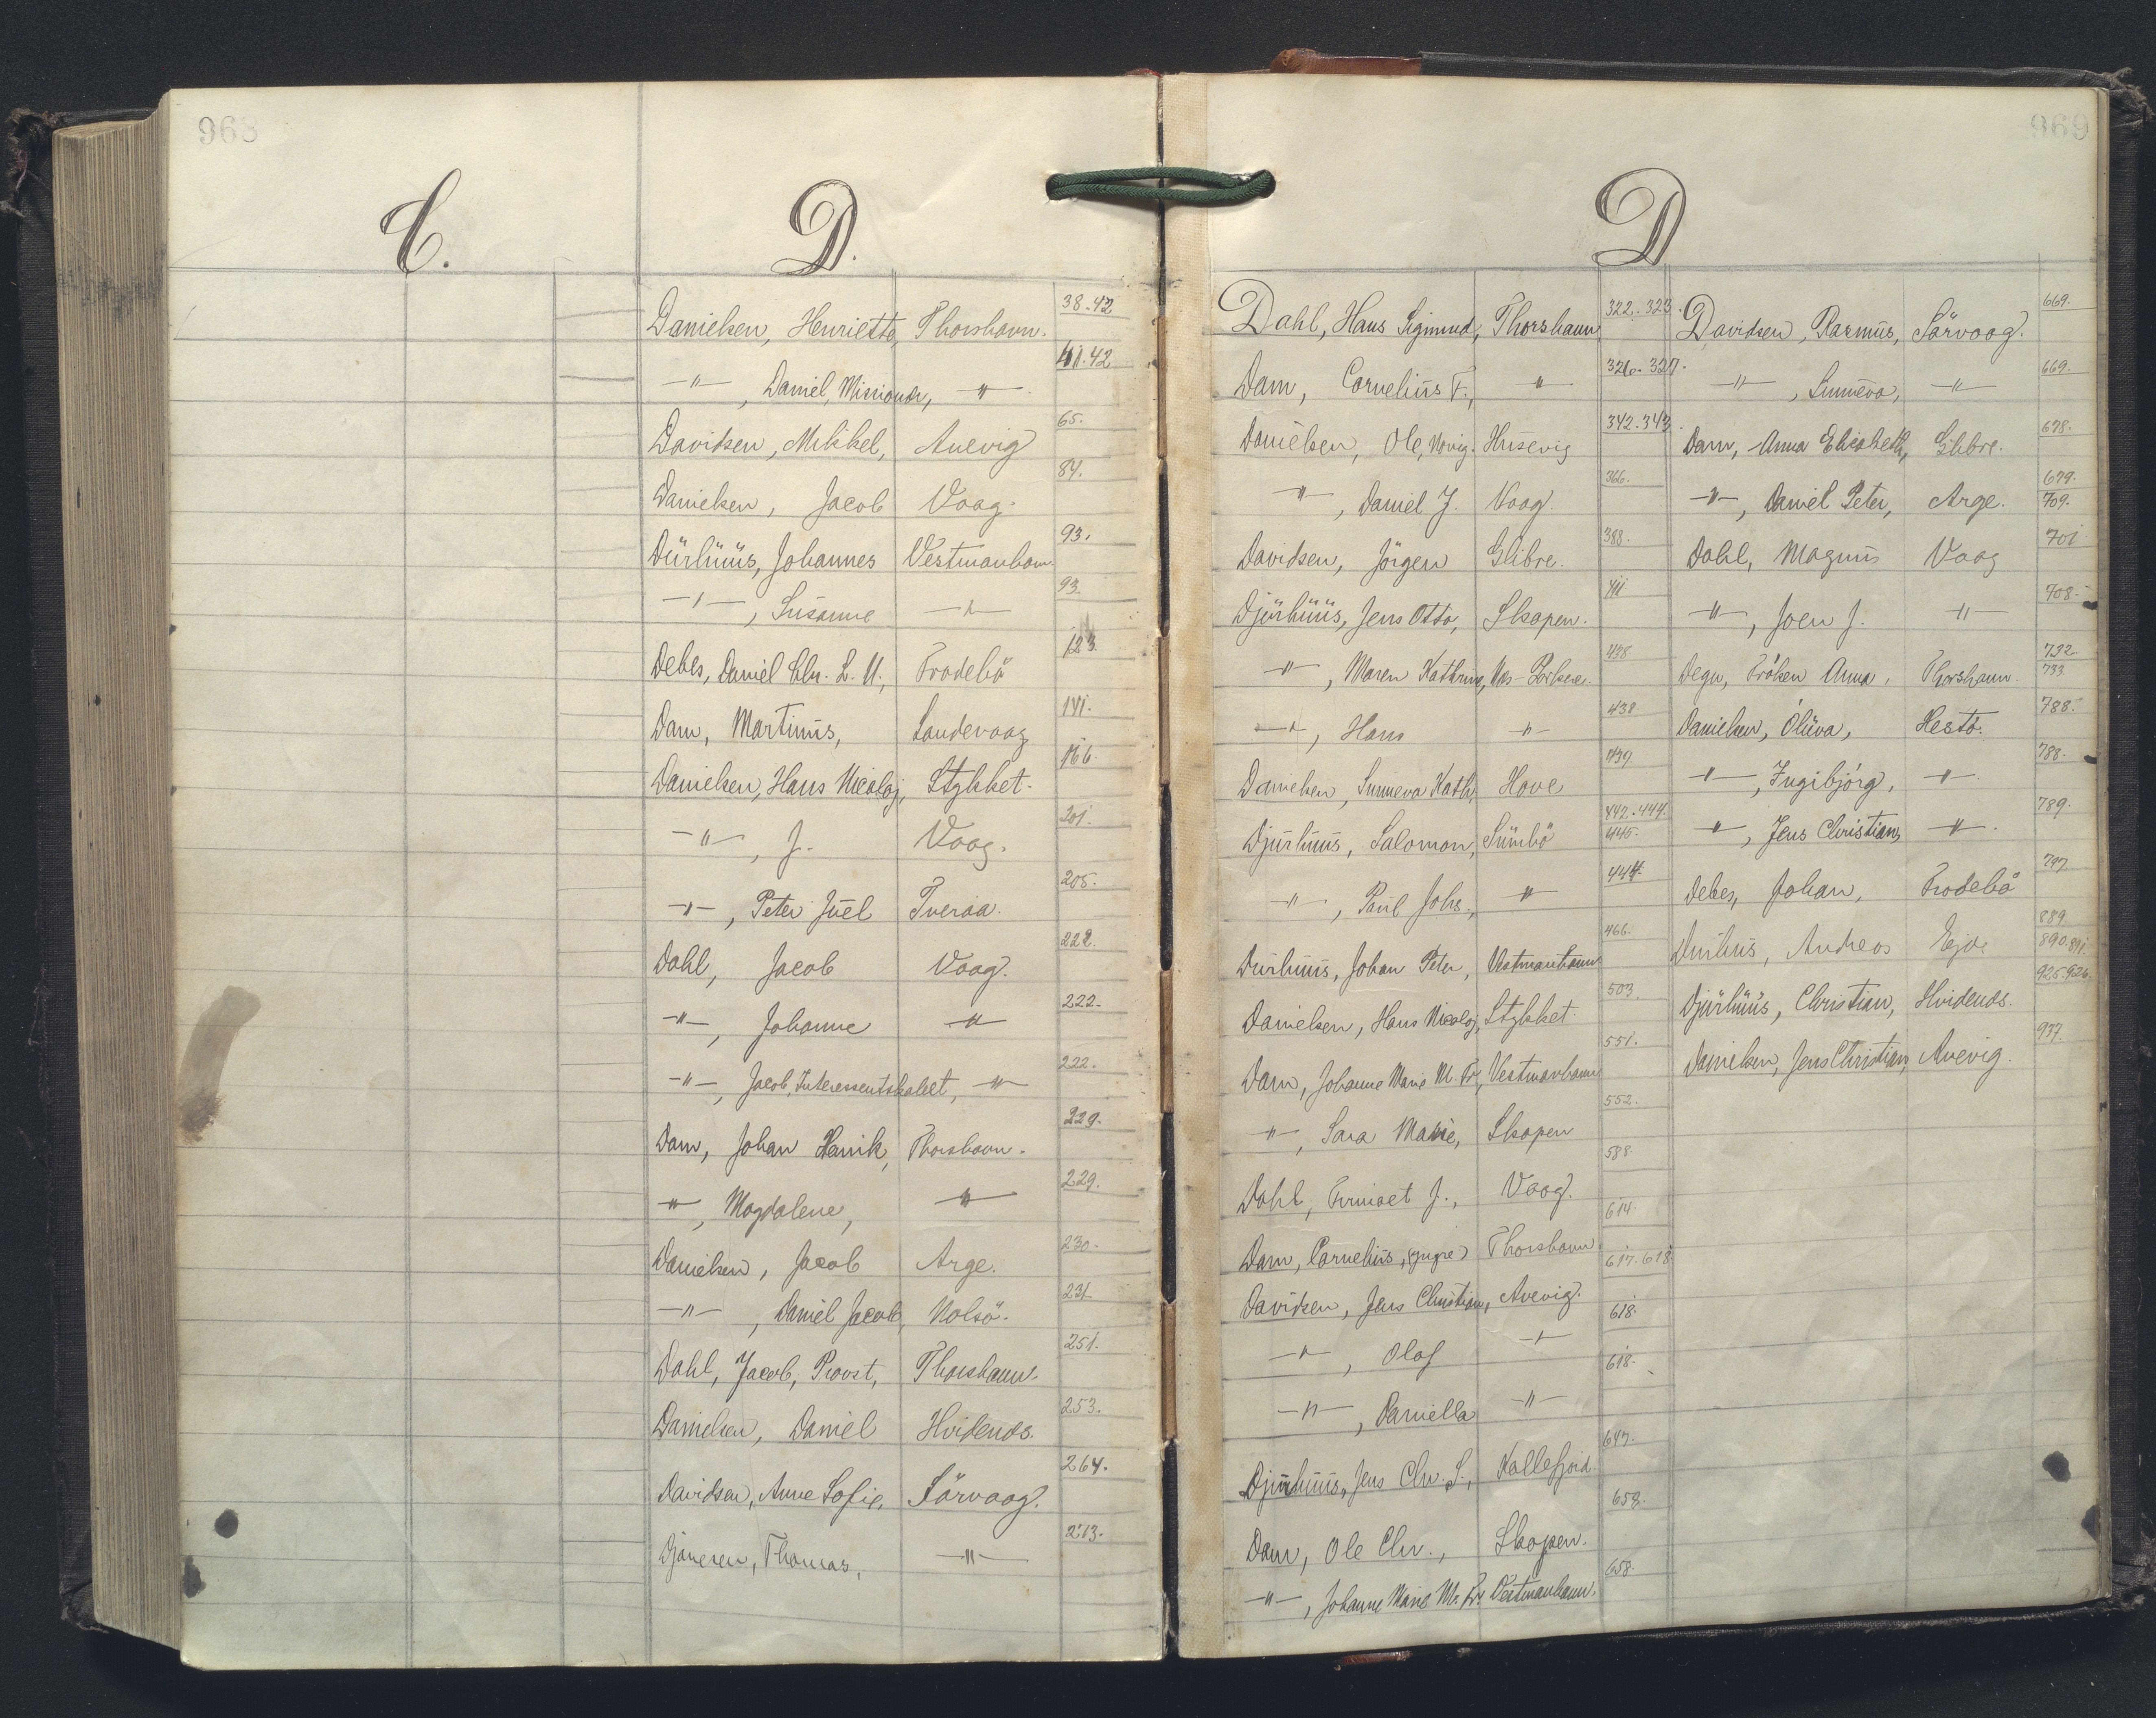 968
C.
D.
Danielsen, Henriette, Thorshavn. 38.42
-"-, Daniel, Missionær, -"- 41.42
Davidsen, Mikkel, Auevig 65.
Danielsen, Jacob Vaag. 84.
Dürhüüs, Johannes Vestmanhavn. 93.
-"-, Susanne -"- 93.
Debes, Daniel Chr. L. U., Frodebö 123.
Dam, Martinus, Sandevaag 141.
Danielsen, Hans Nicolaj, Stykket. 166.
-"-, J. Vaag. 201.
-"-, Peter Juel Tveraa. 205.
Dahl, Jacob Vaag. 222.
-"-, Johanne -"- 222.
-"-, Jacob, Interessentskabet, -"- 222.
Dam, Johan Henrik, Thorshavn. 229.
-"-, Magdalene, -"- 229.
Danielsen, Jacob Arge. 230.
-"-, Daniel Jacob, Nolsö. 231.
Dahl, Jacob, Provst, Thorshavn. 251.
Danielsen, Daniel Hvidenæs. 253.
Davidsen, Anne Sofie, Sörvaag. 264.
Djonesen, Thomas, -"- 273.
969
D
Dahl, Hans Sigmund, Thorshavn, 322. 323.
Dam, Cornelius F., " 326. 327.
Danielsen, Ole, Norig. Husevig 342. 343.
-"-, Daniel J. Vaag. 366.
Davidsen, Jörgen Glibre. 388.
Djürhüüs, Jens Otto, Skopen. 411
-"-, Maren Kathrine, 438
-"-, Hans -"- 438
Danielsen, Sunneva Kath, Hove 439.
Djurhuus, Salomon, Sümbö 442. 444. 445.
-"-, Paul Johs., -"- 444.
Durhuus, Johan Peter, Vestmanhavn 466.
Danielsen, Hans Nicolaj, Stykket. 503.
Dam, Johanne Marie M. Fr., Vestmanhavn 551.
-"-, Sara Marie, Skopen 552.
Dahl, J., Vaag. 588
Dam, Cornelius, (yngre) Thorshavn 614.
Davidsen, Jens Christian, Auevig. 617. 618.
-"-, Olaf -"- 618.
-"-, Daniella -"- 618.
Djurhuus, Jens Chr. S., Kollefjord. 647.
Dam, Ole Chr., Skopen. 658.
-"-, Johanne Marie M. Fr. Vestmanhavn. 658.
Davidsen, Rasmus, Sörvaag. 669.
-"-, Sunneva, -"- 669.
Dam, Anna Elisabeth, Glibre. 678.
-"-, Daniel Peter, Arge. 679. 709.
Dahl, Magnus Vaag 701
-"-, Joen J. " 708.
Degn, Fröken Anna, Thorshavn. 732. 733.
Danielsen, Oluva, Hestö. 788.
-"-, Ingibjörg, -"- 788.
-"-, Jens Christian, -"- 789.
Debes, Johan, Frodebö 797.
Durhus, Andreas Ejde 889. 890.891.
Djürhüüs, Christian, Hvidenæs. 925.926.
Danielsen, Jens Christian, Auevig. 937.